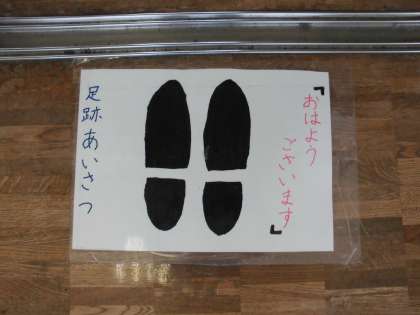 「おはよう
ございます」
足跡あいさつ